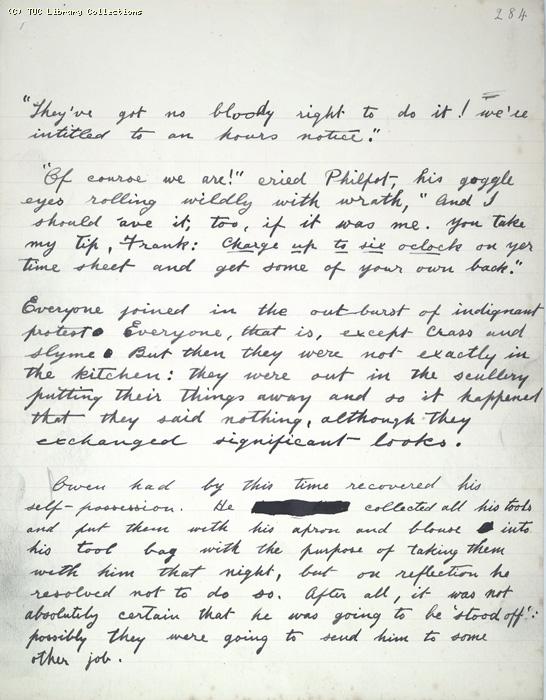 (C) TUC Library Collections
284
"They've got no bloody right to do it! we're
intitled to an hours notice."
"Of course we are!" cried Philpot, his goggle
eyes rolling wildly with wrath, "And I
should 'ave it, too, if it was me. You take
my tip, Frank: Charge up to six oclock on yer
time sheet and get some of your own back."
Everyone joined in the out-burst of indignant
protest. Everyone, that is, except Crass and
Slyme. But then they were not exactly in
the kitchen: they were out in the scullery
putting their things away and so it happened
that they said nothing, although they
exchanged significant looks.
Owen had by this time recovered his
self-possession. He collected all his tools
and put them with his apron and blouse into
his tool bag with the purpose of taking them
with him that night, but on reflection he
resolved not to do so. After all, it was not
absolutely certain that he was going to be 'stood off':
possibly they were going to send him to some
other job.